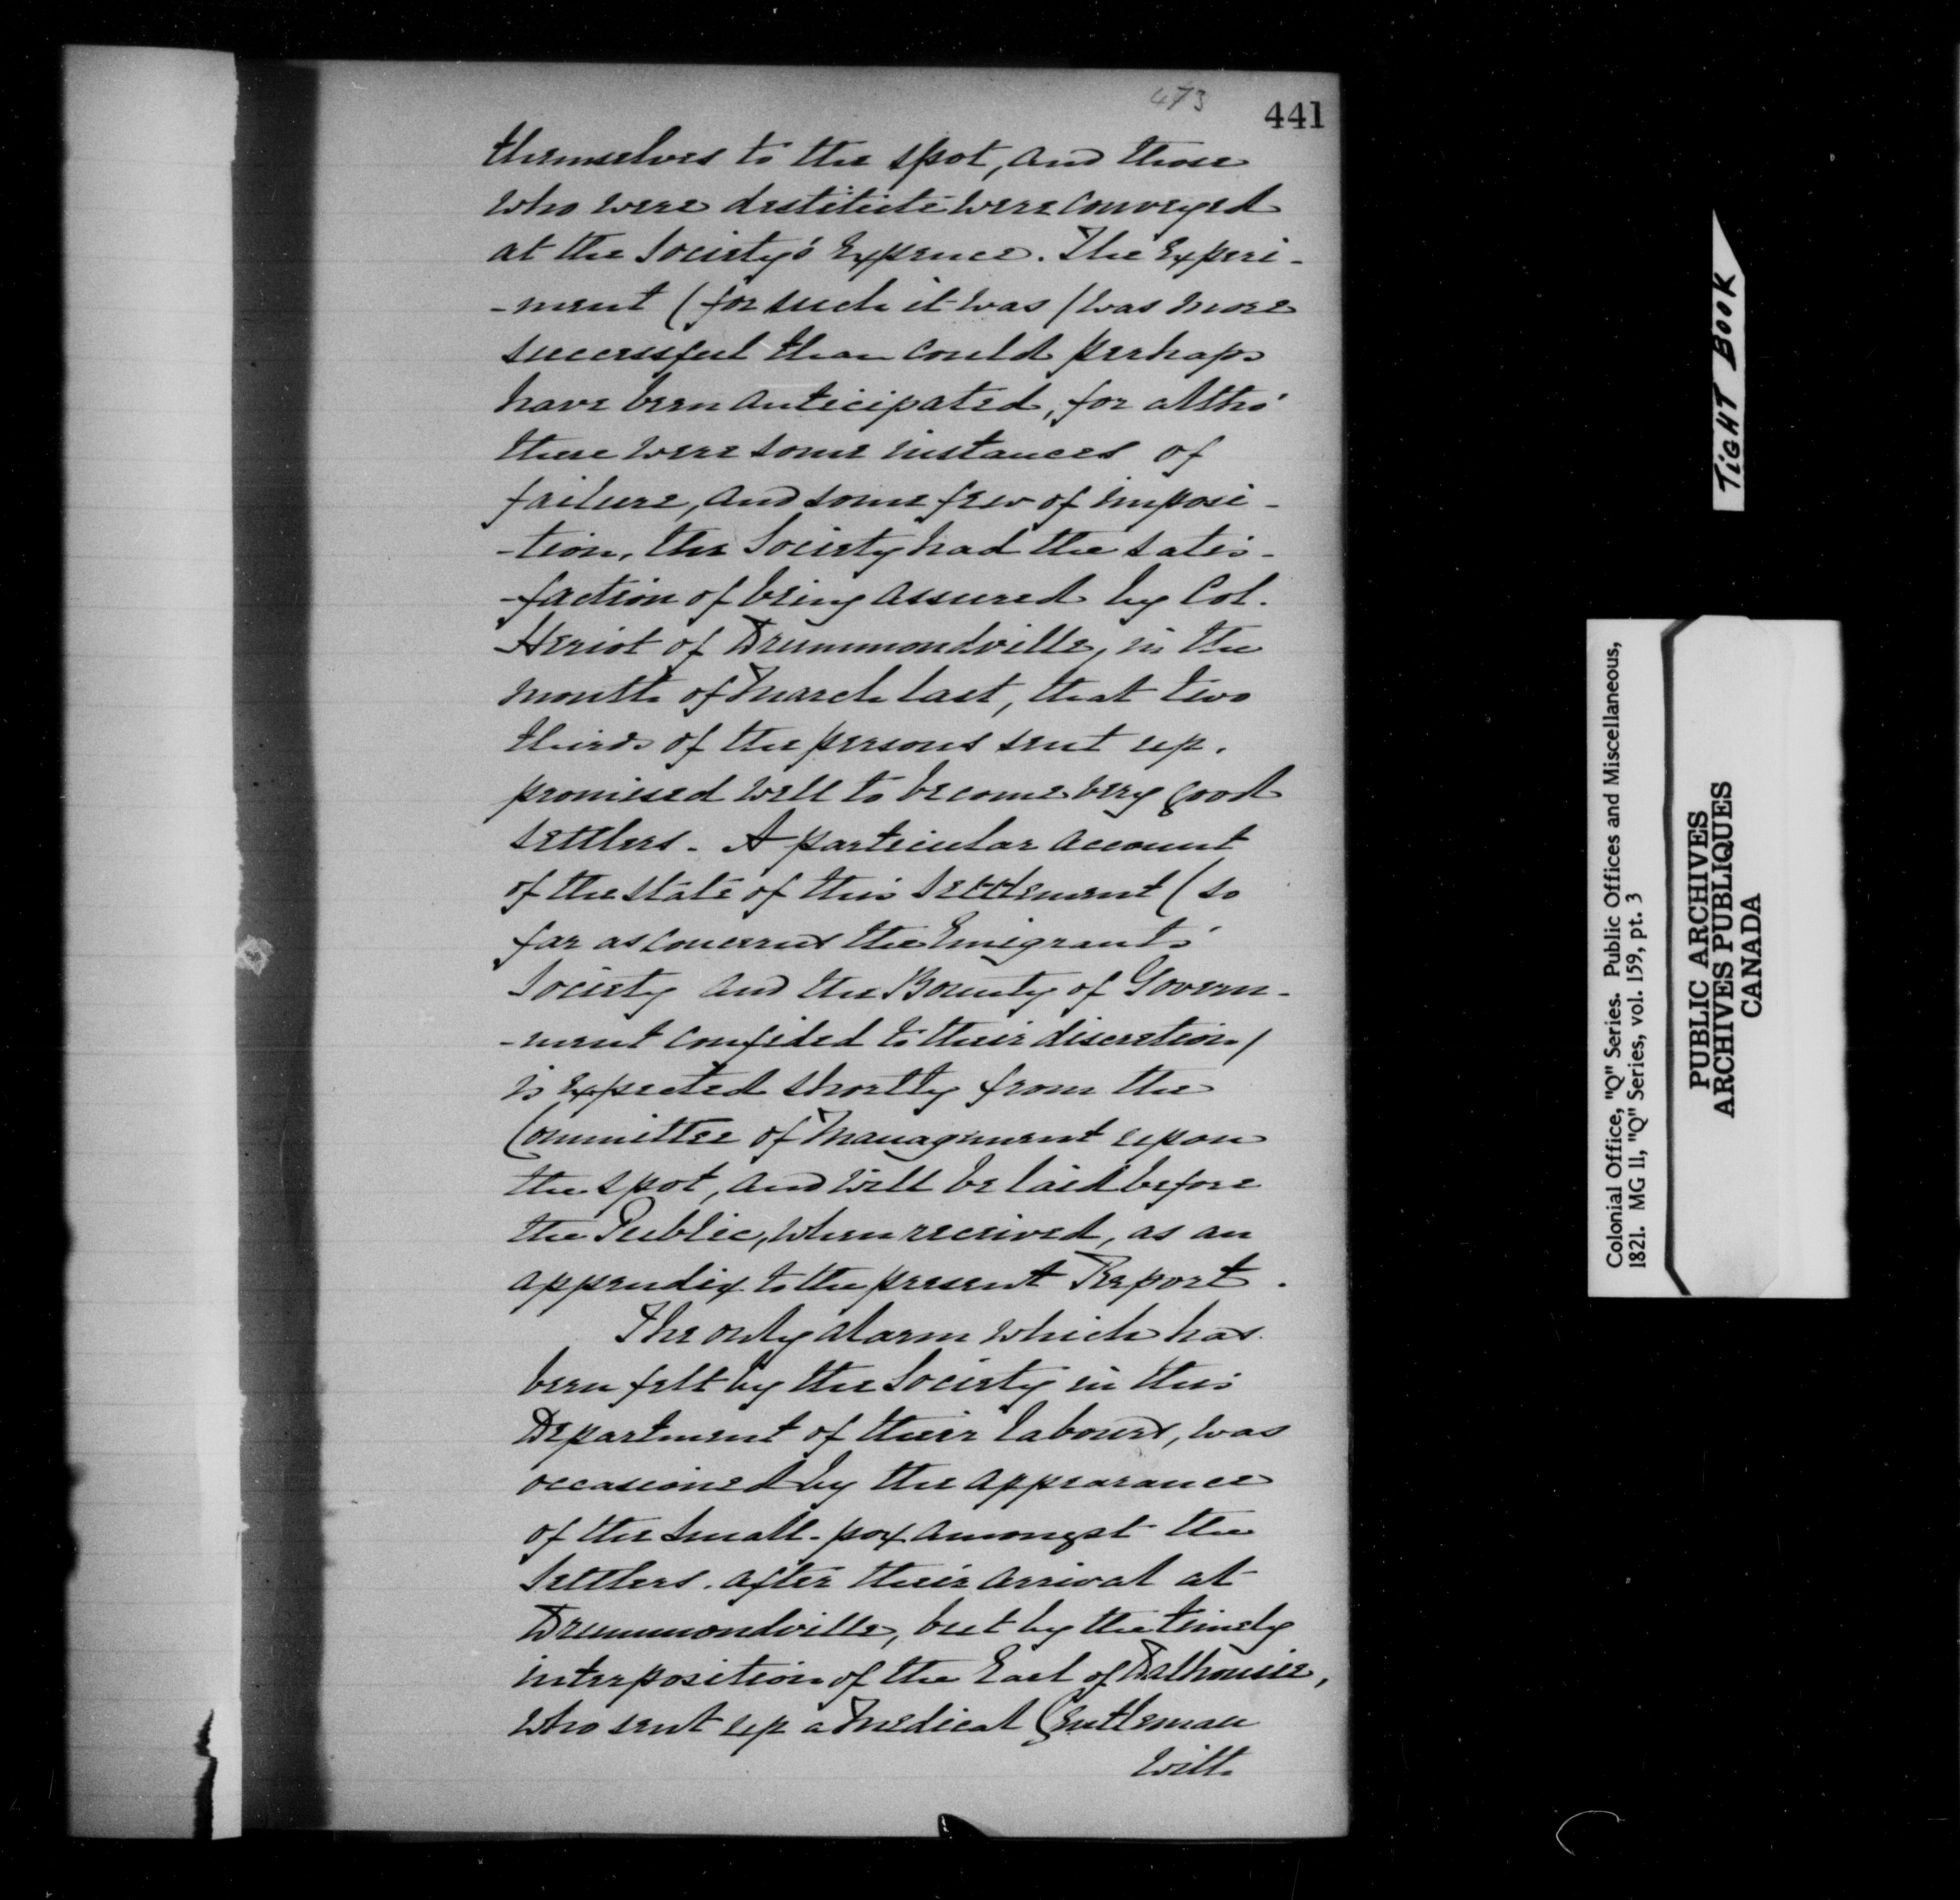 473
441
themselves to the spot, and those
who were destitute were conveyed
at the Society's Expence. The Experi-
-ment (for such it was) was more
successful than could perhaps
have been anticipated, for altho'
there were some instances of
failure, and some few of imposi-
-tion, the Society had the satis-
-faction of being assured by Col.
Heriot of Drummondville, in the
month of March last, that two
thirds of the persons sent up.
promised well to become very good
settlers. A particular account
of the state of this Settlement (so
far as concerns the Emigrants'
Society and the Bounty of Govern-
-ment confided to their discretion)
is expected shortly from the
Committee of Management upon
the spot, and will be laid before
the Public, when received, as an
appendix to the present Report.
The only alarm which has
been felt by the Society in this
Department of their labours, was
occasioned by the appearance
of the Small-pox amongst the
Settlers. after their arrival at
Drummondville, but by the timely
interposition of the Earl of Dalhousie,
who sent up a Medical Gentleman
with
TIGHT BOOK
Colonial Office, "Q" Series. Public Offices and Miscellaneous,
1821. MG 11, "Q" Series, vol. 159, pt. 3
PUBLIC ARCHIVES
ARCHIVES PUBLIQUES
CANADA